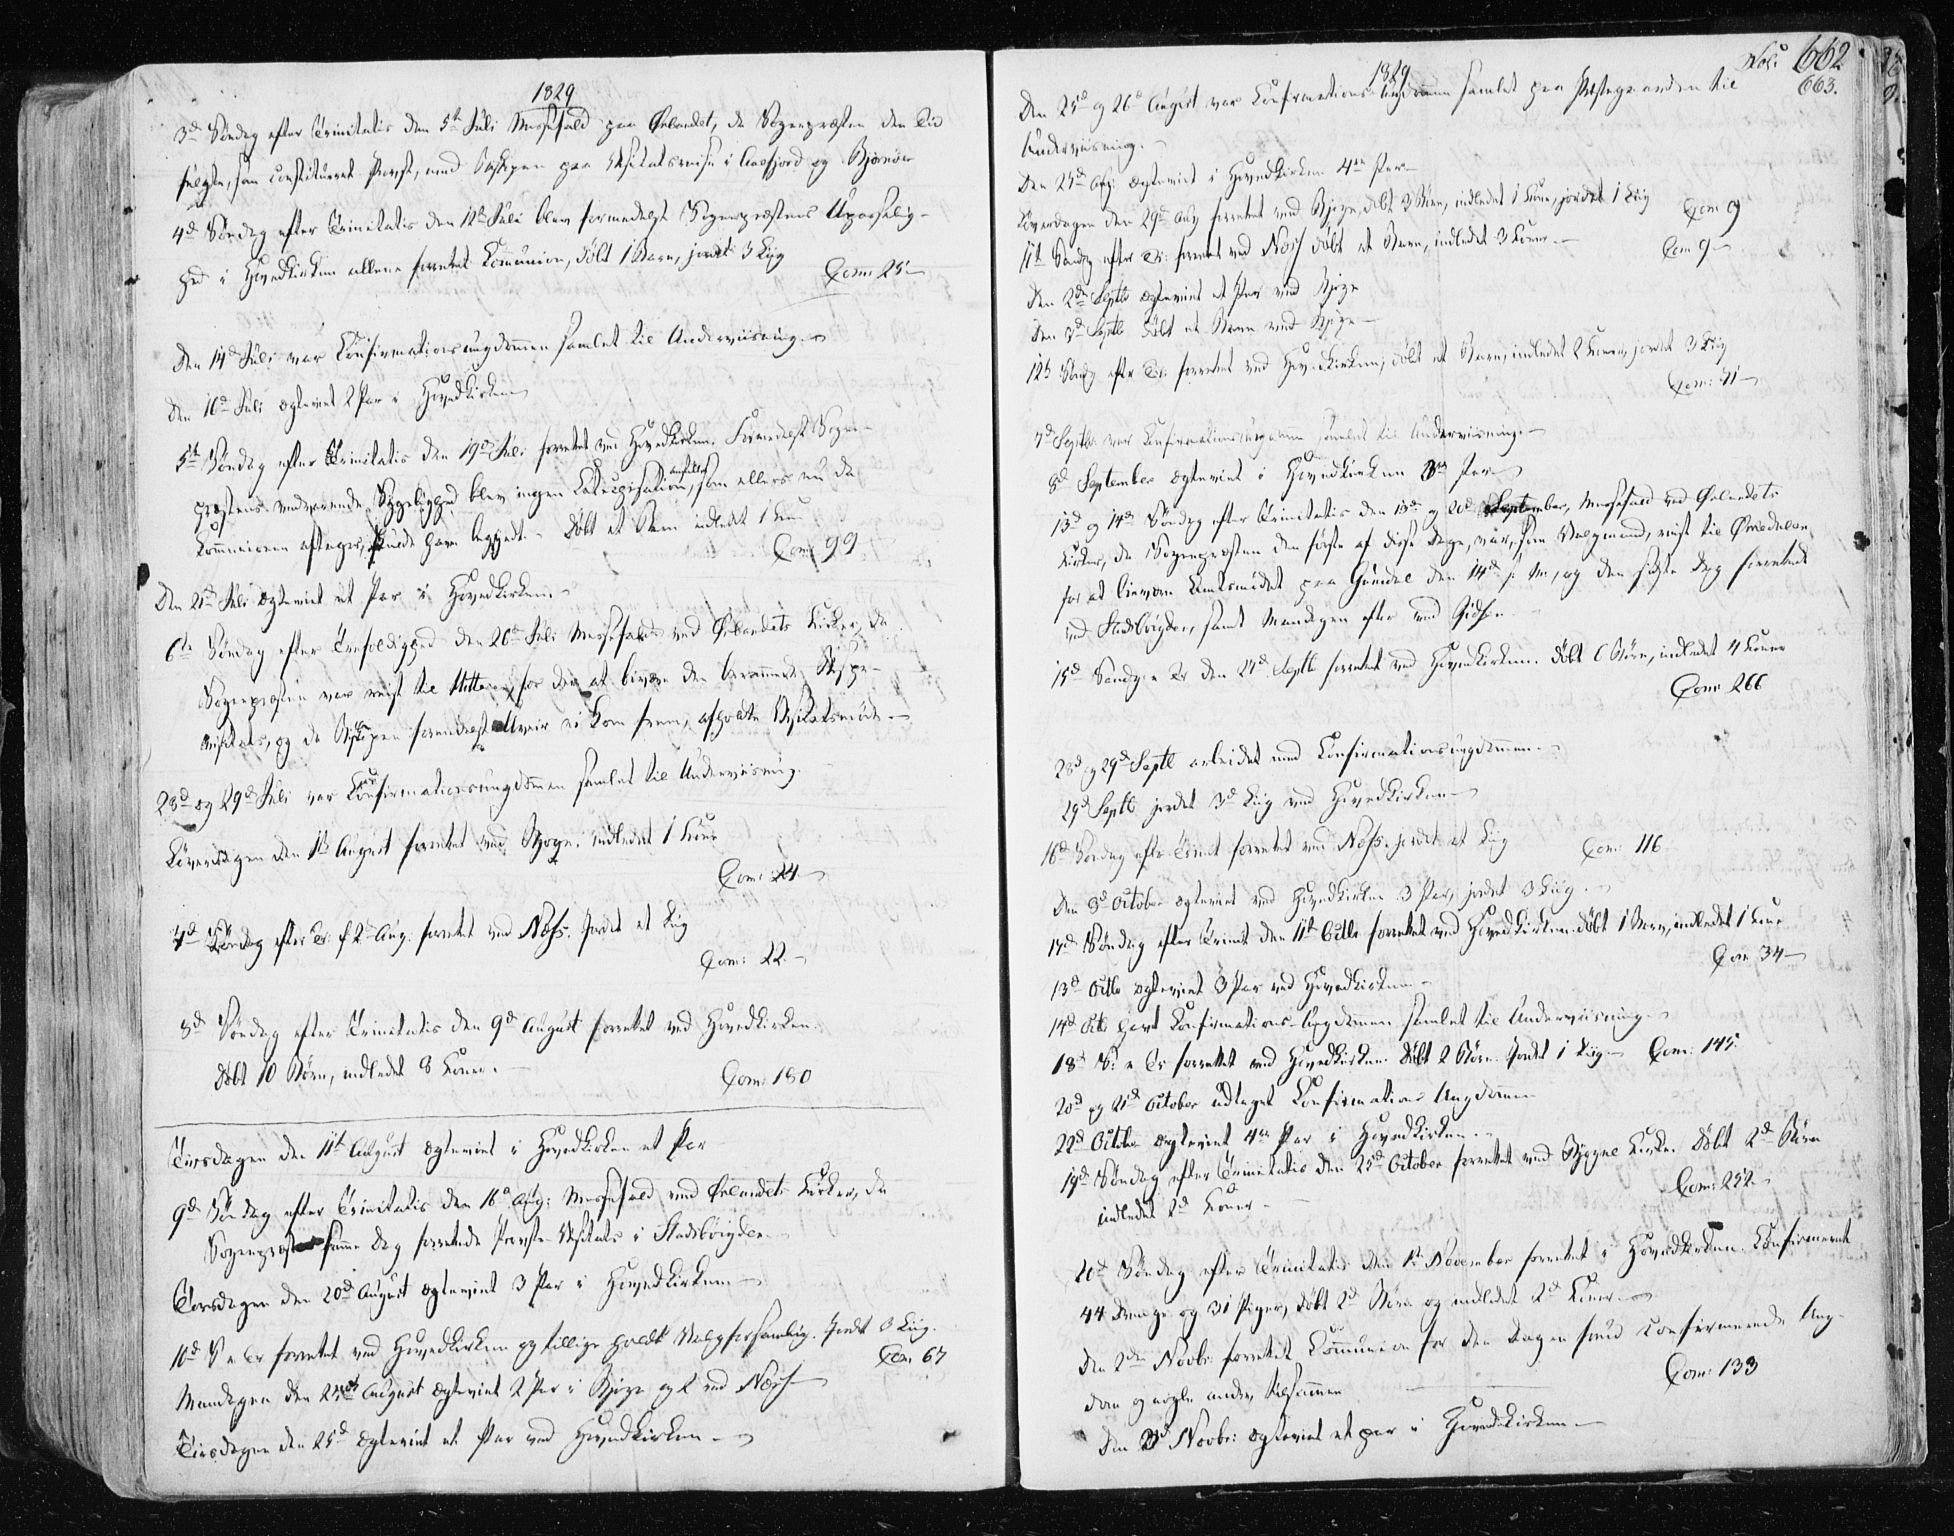 1829
3d Søndag efter Trinitatis den 5te Juli Messefald paa Ørlandet, da Sogenpræsten den Tid
fulgte, som constitueret Provst, med Bispen paa Visitatsreise i Aafjord og Bjørnør
4d Søndag efter Trinitatis den 12te Juli blev formedelst Sogenpræstens Upasselig-
hed i Hovedkirken allene forrettet Communion, døbt 1 Barn, jordet 3 Liig
Com: 25
Den 14d Juli var Confirmationsungdommen samlet til Underviisning.
Den 16d Juli ægteviet 2 Par i Hovedkirken
5te Søndag efter Trinitatis den 19de Juli forrettet ved Hovedkirken. Formedelst Sogne-
præstens vedvarende Svagelighed blev ingen Catechisation anstillet, som ellers nu da
Communionen aftager, skulde have begyndt. Døbt et Barn indledt 1 Kone
Com: 99
Den 21d Juli ægteviet et Par i Hovedkirken
6te Søndag efter Trefoldighed den 26de Juli Messefald ved Ørlandets Kirker, da
Sogenpræsten var reist til Hitteren for der at bivære den berammede Bispe-
visitats, og da Bispen formedelst Uveir ei kom frem, afholdte Visitatsmøde
28d og 29d Juli var Confirmationsungdommen samlet til Underviisning.
Løverdagen den 1te August forrettet ved Bjugn. indledet 1 Kone
Com: 24
7d Søndag efter Tr: d. 2d Aug. forrettet ved Næss. Jordet et Liig
Com: 22.
8d Søndag efter Trinitatis den 9d August forrettet ved Hovedkirken.
Døbt 10 Børn, indledet 8 Koner.
Com: 180
Tirsdagen den 11te August ægteviet i Hovedkirken et Par
9d Søndag efter Trinitatis den 16d Aug: Messefald ved Ørlandets Kirker, da
Sogenpræsten samme Dag forrettede Provste Visitats i Stadsbøigden.
Torsdagen den 20d August ægteviet 3 Par i Hovedkirken
10d S e Tr forrettet ved Hovedkirken og tillige holdt Valgforsamling. Jordet 3 Liig.
Com 67
Mandagen den 24de August ægteviet 2 Par i Bjugn og 2 ved Næss
Tirsdagen den 25d ægteviet et Par ved Hovedkirken
1829
Fol: 662
663.
Den 25d og 26d August var Confirmations Ungdommen samlet paa Præstegaarden til
Underviisning.
Den 25d Aug: ægteviet i Hovedkirken 4re Par
Løverdagen den 29d Aug forrettet ved Bjugn, døbt 3 Børn, indledet 1 Kone, jordet 1 Liig
Com 9
11te Søndag efter Tr: forrettet ved Næss døbt et Barn, indledet 3 Koner
Com 9
Den 2den Septb ægteviet et Par ved Bjugn
Den 3d Septb døbt et Barn ved Bjugn
12te Søndag efter Tr: forrettet ved Hovedkirken, døbt et Barn, indledet 2 Koner, jordet 3 Liig
Com: 41
7d Septbr var Confirmationsungdommen samlet til Underviisning
8d September ægteviet i Hovedkirken 3 Par
13d og 14d Søndag efter Trinitatis den 13de og 20d September, Messefald ved Ørlandets
Kirker, da Sogenpræsten den første af disse Dage, var, som Valgmand, reist til Ørkedalen
for at bivære Amtsmødet paa Grindal den 14d s. M., og den sidste Dag forrettet
ved Stadsbøigden, samt Mandagen efter ved
15d Søndag e Tr den 27d Septb forrettet ved Hovedkirken. Døbt 6 Børn, indledet 4 Koner
Com: 266
28d og 29d Septb arbeidet med Confirmationsungdommen.
29d Septb jordet 3d Liig ved Hovedkirken
16d Søndag efter Trinit forrettet ved Næss. jordet et Liig Com: 116
Den 8d October ægteviet ved Hovedkirken 3 Par, jordet 3 Liig.
17d Søndag efter Trinit den 11te Octb forrettet ved Hovedkirken. døbt 1 Barn, indledet 1 Kone
Com 34
13d Octb ægteviet 3 Par ved Hovedkirken
14d Octb havt Confirmations-Ungdommen samlet til Underviisning
18d S: e Tr forrettet ved Hovedkirken. Døbt 2 Børn. Jordet 1 Liig. Com: 145
20d og 21d October udtaget Confirmations Ungdommen
22d October ægteviet 4re Par i Hovedkirken
19d Søndag efter Trinitatis den 25d October forrettet ved Bjugns Kirke. Døbt 2d Børn
indledet 2d Koner
Com: 252
20d Søndag efter Trinitatis den 1te November forrettet i Hovedkirken. Confirmeret
44 Drenge og 31 Piger, døbt 2d Børn og indledet 2d Koner.
Den 2den Novbr: forrettet Communion for den Dagen forud confirmerede Ung-
dom og nogle andre tilsammen
Com: 133
Den 3d Novbr: ægteviet et par i Hovedkirken